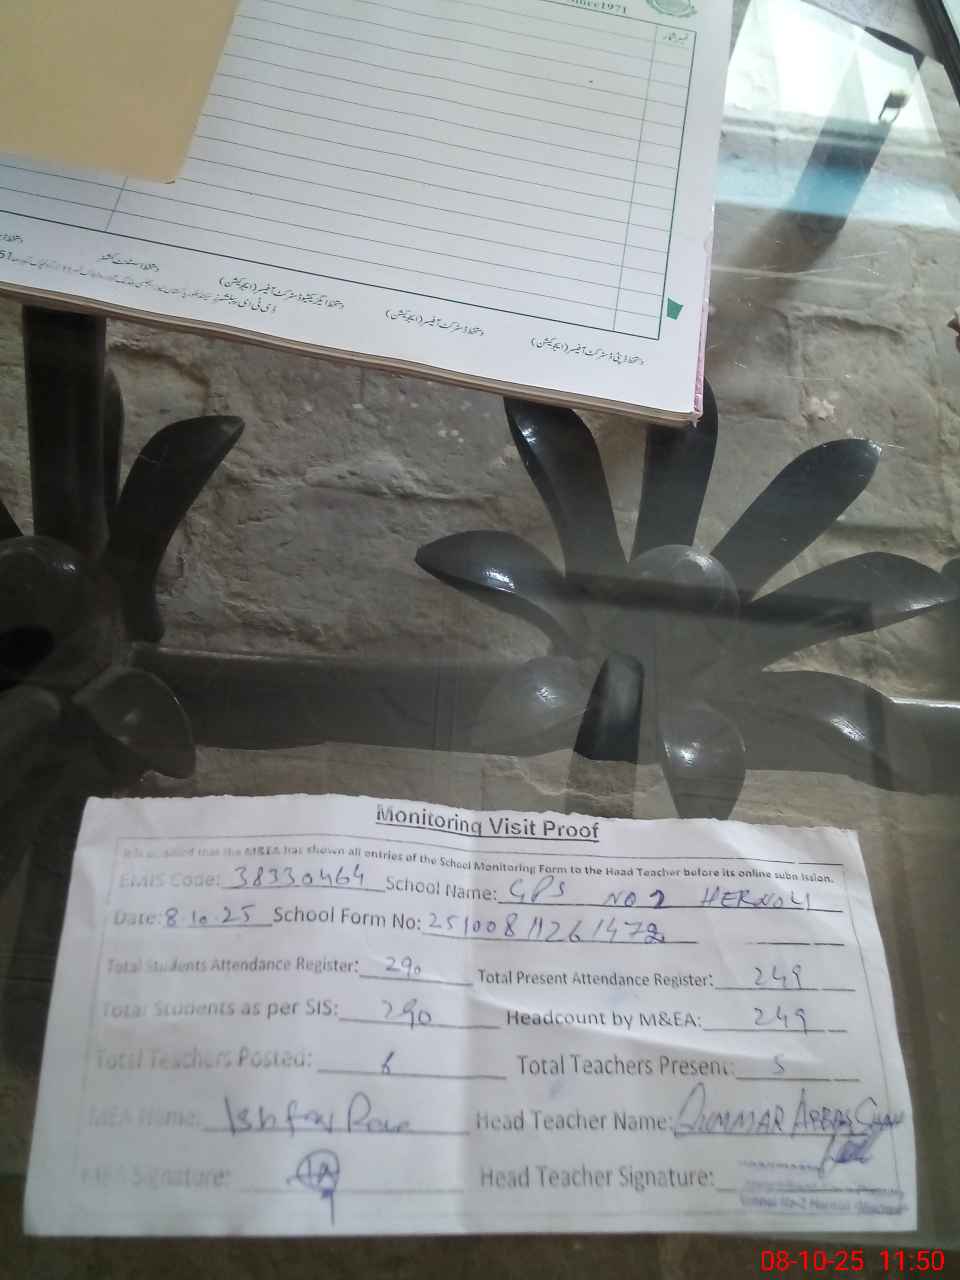 Since1971
نمبر شمار
دستخط اسسٹنٹ کمشنر
دستخط ایگزیکٹو ڈسٹرکٹ آفیسر (ایجوکیشن)
دستخط ڈسٹرکٹ آفیسر (ایجوکیشن)
دستخط ڈپٹی ڈسٹرکٹ آفیسر (ایجوکیشن)
Monitoring Visit Proof
that the M&EA has shown all entries of the School Monitoring Form to the Head Teacher before its online submission.
EMIS Code: 38330464 School Name: GPS NO 2 HERNOLI
Date: 8.10.25 School Form No: 25100811261472
Total Students Attendance Register: 290 Total Present Attendance Register: 249
Total Students as per SIS: 290 Headcount by M&EA: 249
Total Teachers Posted: 6 Total Teachers Present: 5
MEA Name: Head Teacher Name: QUMMAR ABBAS SHAH
MEA Signature: Head Teacher Signature:
08-10-25 11:50